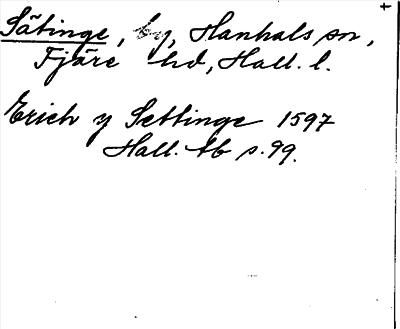 Sätinge, by, Hanhals sn,
Fjäre hd, Hall. l.
Erich y Settinge 1597
Hall. tb s. 99.